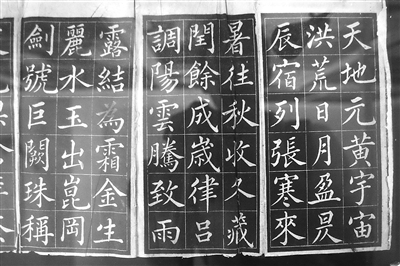 天地元黄宇宙
洪荒日月盈昃
辰宿列張寒來
暑往秋收冬藏
閏餘成歳律呂
調陽雲騰致雨
露結為霜金生
麗水玉出崑岡
劍號巨闕珠稱